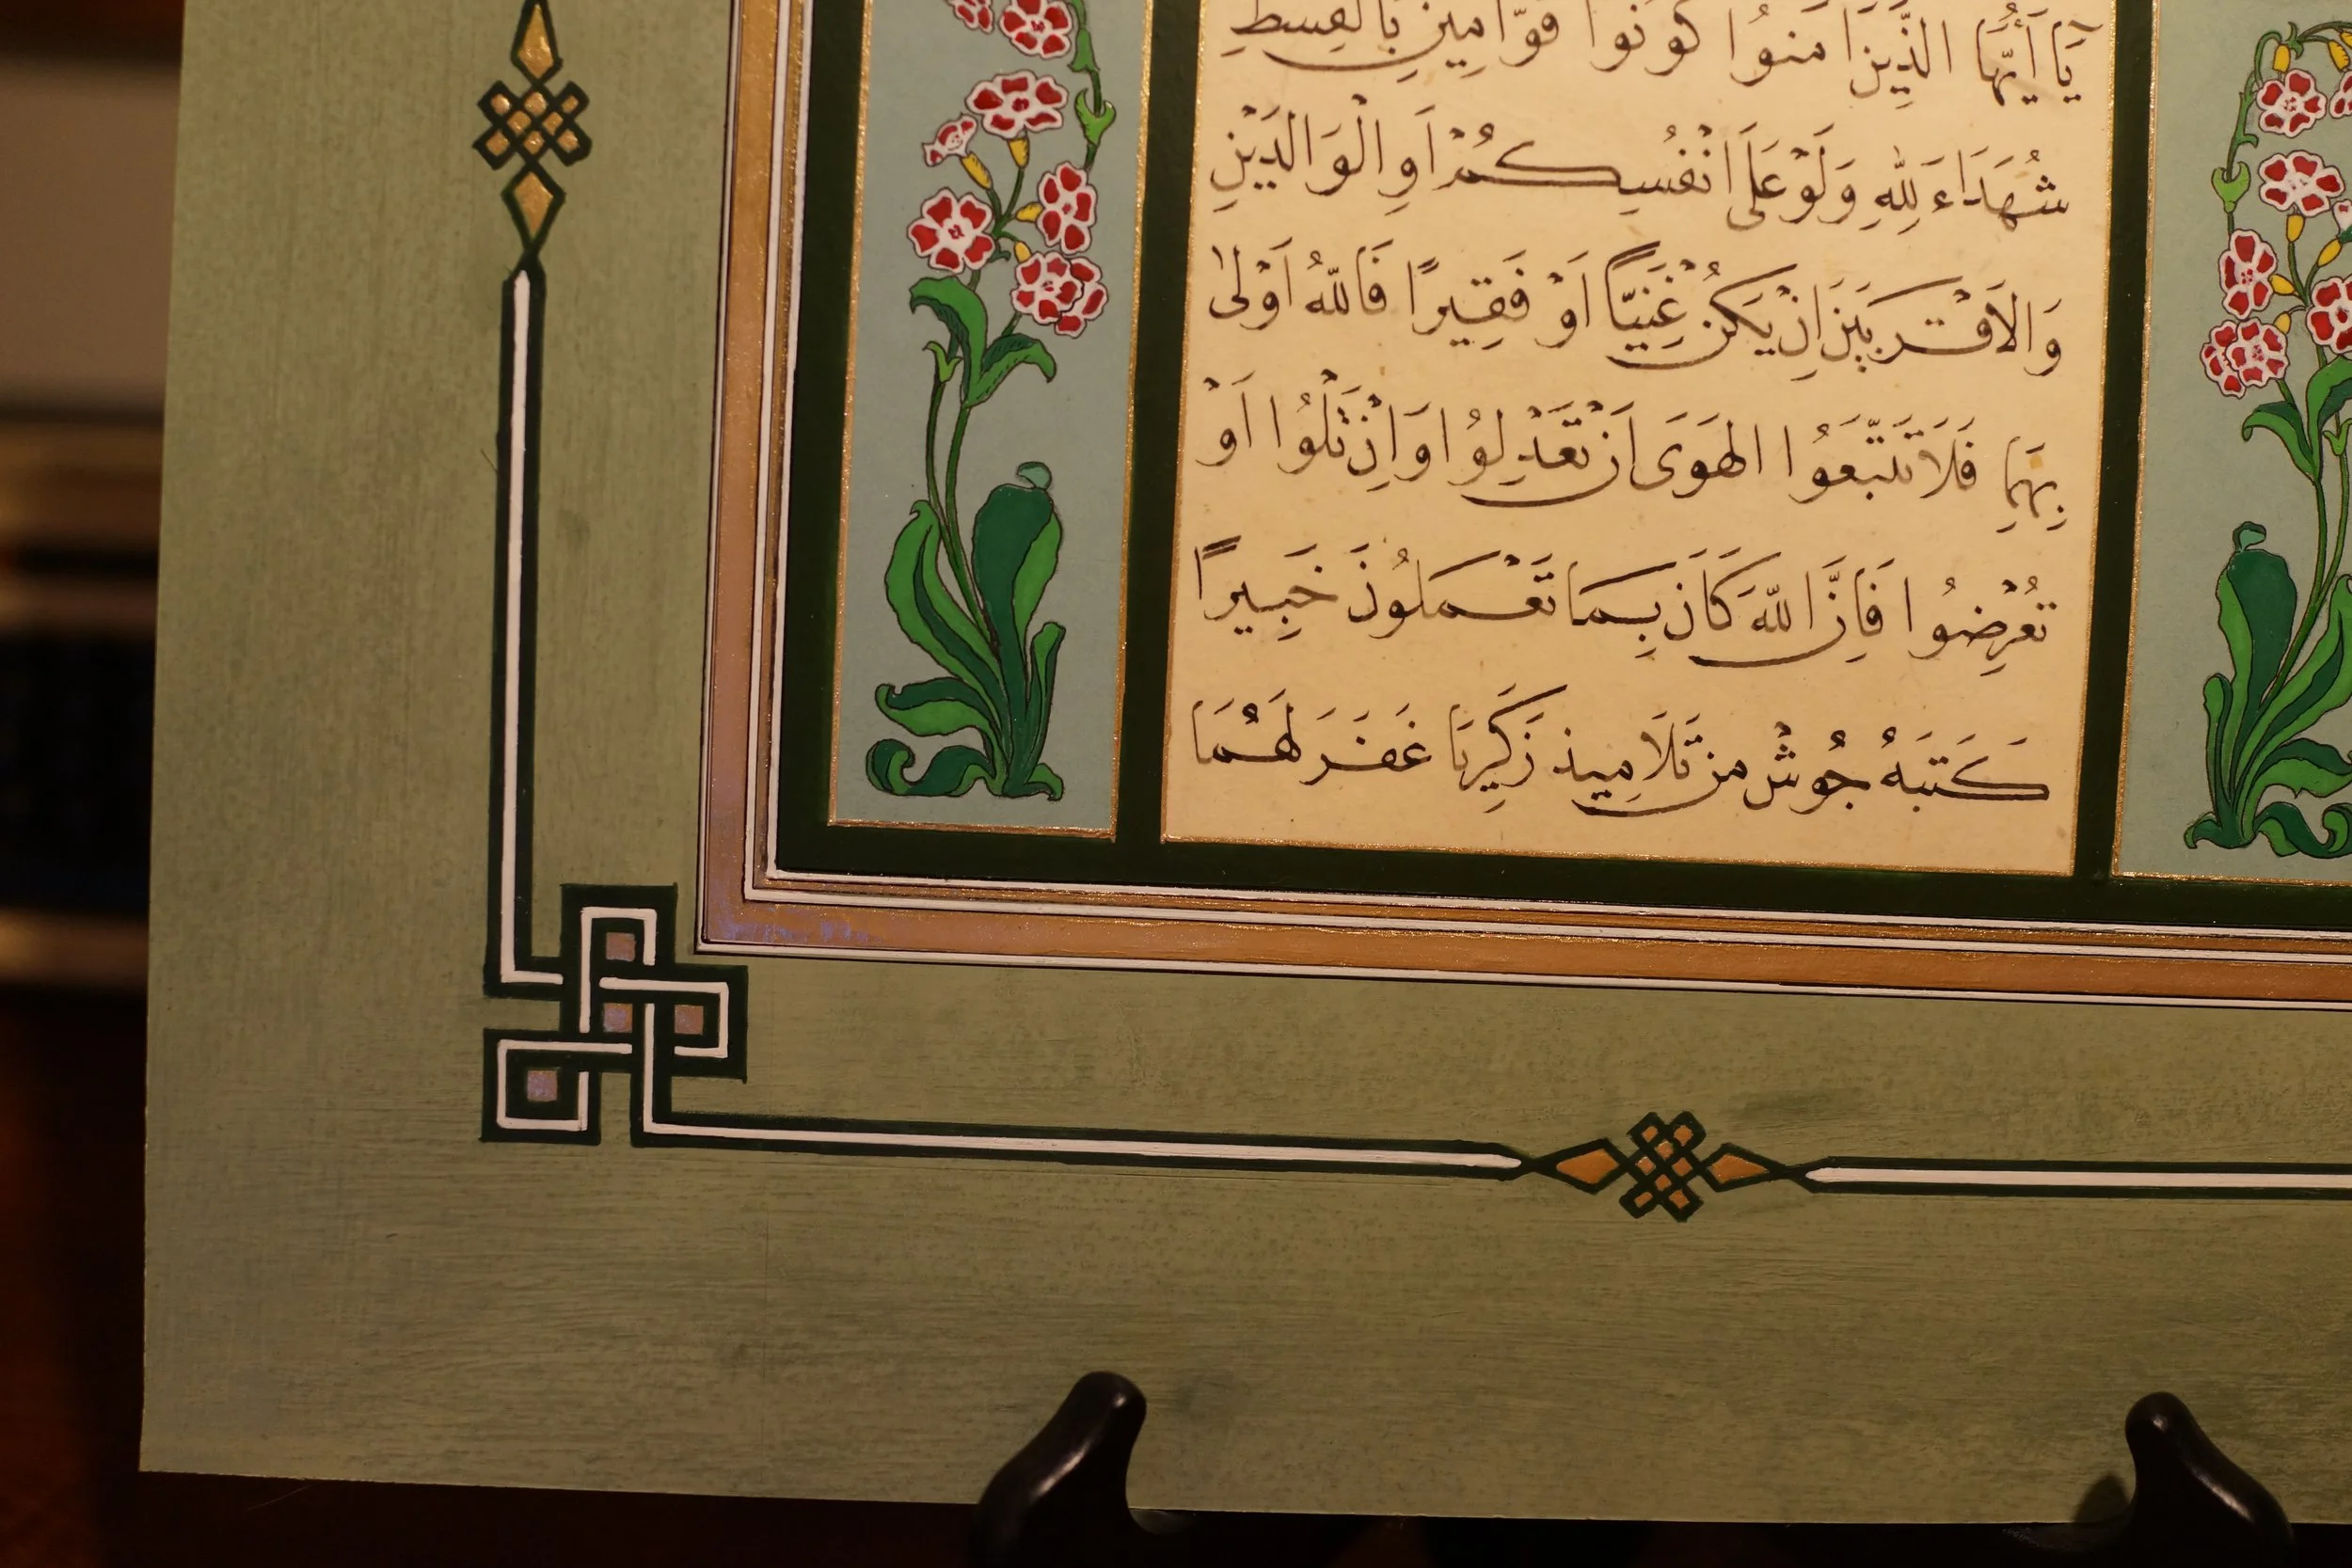 يَا أَيُّهَا الَّذِينَ اٰمَنُوا كُونُوا قَوَّامِينَ بِالْقِسْطِ
شُهَدَاءَ لِلّٰهِ وَلَوْ عَلَى اَنْفُسِكُمْ اَوِ الْوَالِدَيْنِ
وَالاَقْرَبِينَ اِنْ يَكُنْ غَنِيًّا اَوْ فَقِيرًا فَاللّٰهُ اَوْلٰى
بِهِمَا فَلَا تَتَّبِعُوا الْهَوَى اَنْ تَعْدِلُوا وَاِنْ تَلْوُا اَوْ
تُعْرِضُوا فَاِنَّ اللّٰهَ كَانَ بِمَا تَعْمَلُونَ خَبِيرًا
كَتَبَهُ جُوشْ مِنْ تَلَامِيذِ زَكَرِيَّا غَفَرَ لَهُمَا